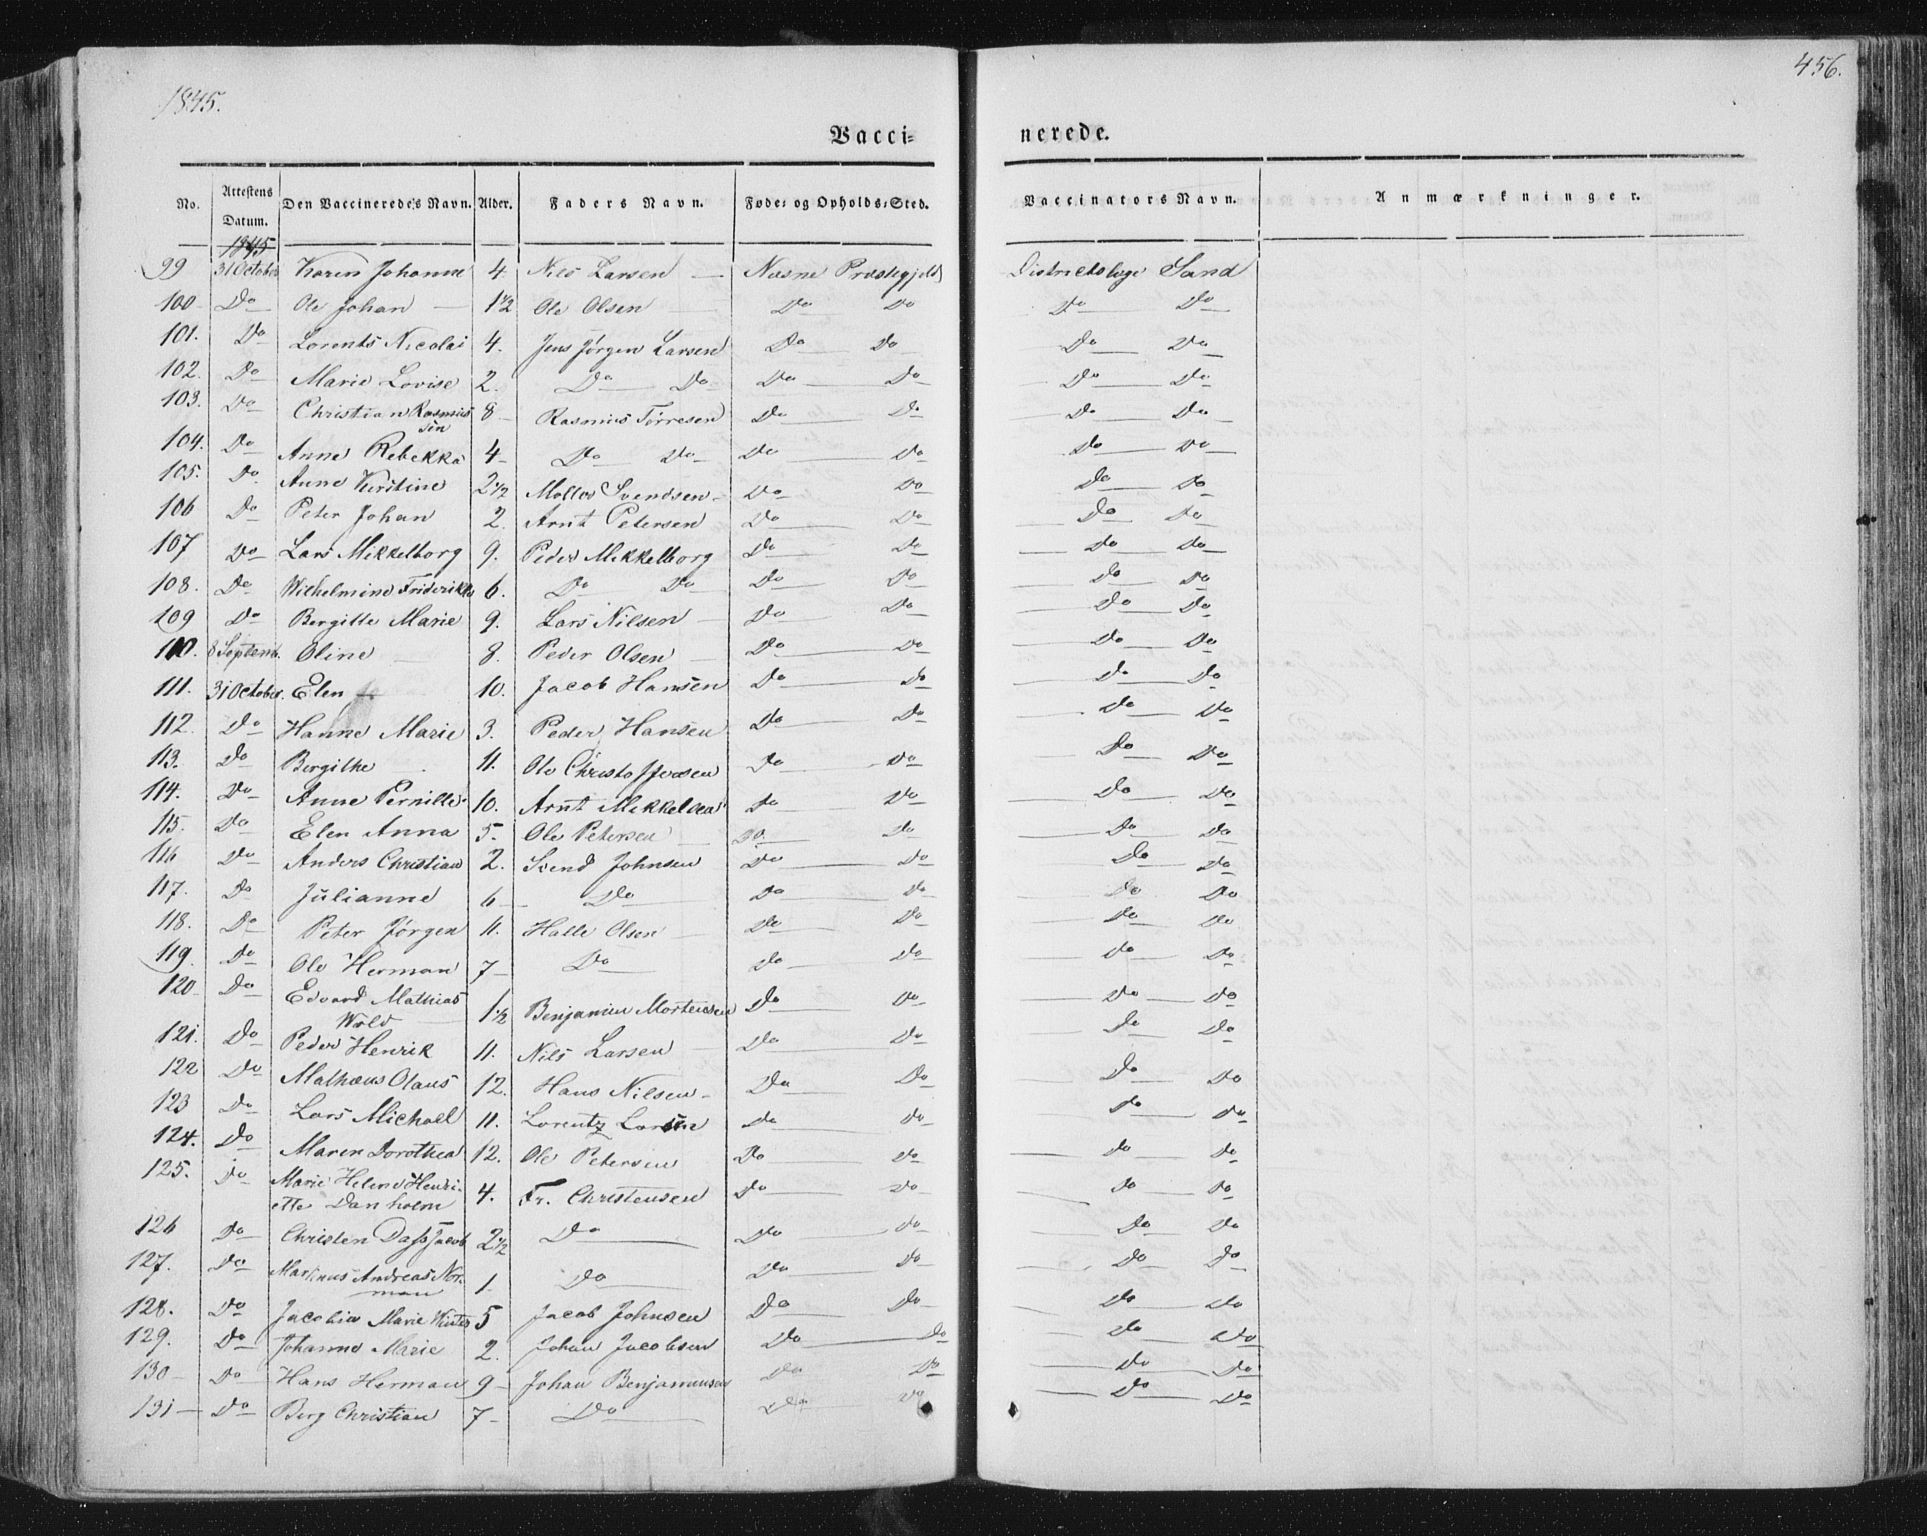 1845.
456.
Vacci=
nerede.
No. Attestens Datum. Den Vaccineredes Navn. Alder. Faders Navn. Føde= og Opholds=Sted. Vaccinators Navn. Anmærkninger.
1845
99 31 October Karen Johanne 4 Nils Larsen — Næsne Præstegjeld Districtslæge Sand
100 Do Ole Johan — 1 1/2 Ole Olsen — Do Do Do Do
101. Do Lorents Nicolai 4. Jens Jørgen Larsen Do Do Do Do
102. Do Marie Lovise 2. Do Do Do Do Do Do
103. Do Christian Rasmus 8 – Rasmus Tørresen Do Do Do Do
sen
104. Do Anne Rebekka 4 – Do Do Do Do Do Do
105. Do Anne Kirstine 2 1/2 Svendsen – Do Do Do Do
106 Do Peter Johan 2. Arnt Petersen Do Do Do Do
107 Do Lars Mikkelborg 9. Peder Mikkelborg Do Do Do Do
108. Do Wilhelmine Friderikke 6. Do Do Do Do Do Do
109 Do Bergitte Marie 9. Lars Nilsen Do Do Do Do
110. 8 Septemb. Oline — 8. Peder Olsen — Do Do Do Do
111. 31 October. Elen 10. Jacob Hansen Do Do Do Do
112. Do Hanne Marie 3. Peder Hansen Do Do Do Do
113. Do Bergithe 11. Ole Christoffersen Do Do Do Do
114. Do Anne Pernille 10. Arnt Mikkelsen Do Do Do Do
115. Do Elen Anna 5. Ole Petersen Do Do Do Do
116 Do Anders Christian 2. Svend Johnsen Do Do Do Do
117. Do Julianne 6 – Do Do Do Do Do
118. Do Peter Jørgen 11. Halle Olsen — Do Do Do Do
119. Do Ole Herman 7 – Do Do Do Do Do
120 Do Edvard Mathias 1 1/2 Benjamin Mortensen Do Do Do Do
Wold
121. Do Peder Henrik 11. Nils Larsen — Do Do Do Do
122 Do Mathæus Olaus 12. Hans Nilsen – Do Do Do Do
123 Do Lars Michael 11. Lorentz Larsen Do Do Do Do
124. Do Maren Dorothea 12. Ole Petersen Do Do Do Do
125. Do Marie Helene Henri- 4. Fr. Christensen Do Do Do Do
ette Danholm
126 Do Christen Dass Jacob 2 1/2 Do Do Do Do Do
127. Do Martinus Andreas Nor- 1. Do Do Do Do Do
man
128. Do Jacobia Marie Winter 5 Jacob Johnsen Do Do Do Do
129. Do Johanne Marie 2. Johan Jacobsen Do Do Do Do
130 – Do Hans Herman 9 – Johan Benjaminsen Do Do Do Do
131 — Do Berg Christian 7 – Do Do Do Do Do